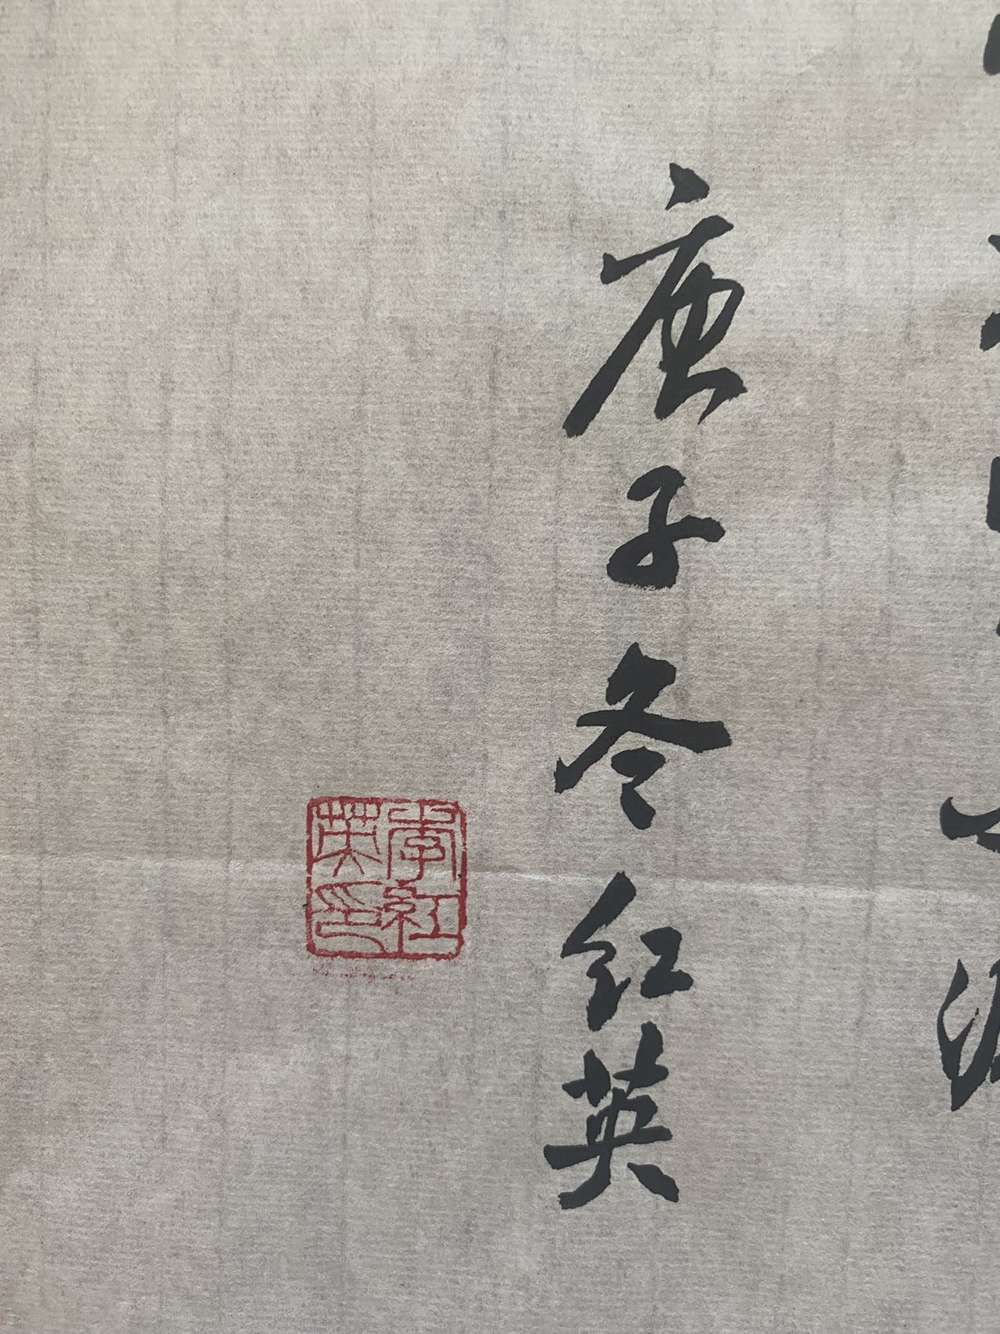 庚子冬红英
李紅英印